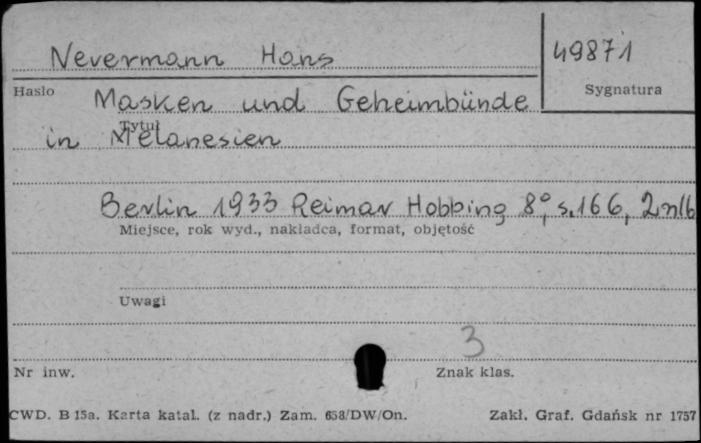 Nevermann Hans
49871
Hasło
Sygnatura
Masken und Geheimbünde
Tytuł
in Melanesien
Berlin 1933 Reimar Hobbing 8°, s.166, 2nlb
Miejsce, rok wyd., nakładca, format, objętość
Uwagi
3
Nr inw.
Znak klas.
CWD. B 15a. Karta katal. (z nadr.) Zam. 658/DW/On.
Zakł. Graf. Gdańsk nr 1757